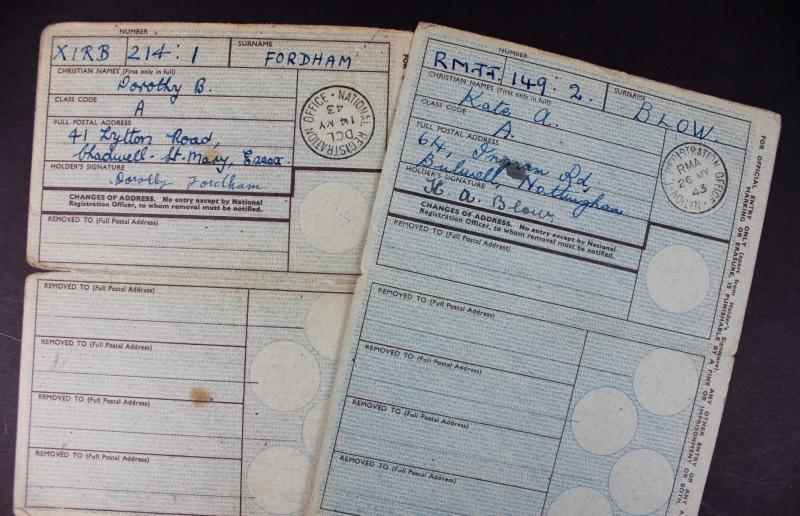 NUMBER
XIRB 214 : 1
SURNAME
FORDHAM
CHRISTIAN NAMES (First only in full)
Dorothy B.
CLASS CODE
A
FULL POSTAL ADDRESS
41 Lytton Road,
Chadwell-St-Mary, Essex.
HOLDER'S SIGNATURE
Dorothy Fordham
NATIONAL REGISTRATION OFFICE
DCL
14 MY
43
CHANGES OF ADDRESS. No entry except by National
Registration Officer, to whom removal must be notified.
REMOVED TO (Full Postal Address)
REMOVED TO (Full Postal Address)
REMOVED TO (Full Postal Address)
REMOVED TO (Full Postal Address)
REMOVED TO (Full Postal Address)
FOR
NUMBER
RMJJ 149 : 2.
SURNAME
BLOW.
CHRISTIAN NAMES (First only in full)
Kate A.
CLASS CODE
A.
FULL POSTAL ADDRESS
64, Ingram Rd
Bulwell, Nottingham
HOLDER'S SIGNATURE
K. A. Blow
NATIONAL REGISTRATION OFFICE
RMA
26 MY
43
CHANGES OF ADDRESS. No entry except by National
Registration Officer, to whom removal must be notified.
REMOVED TO (Full Postal Address)
REMOVED TO (Full Postal Address)
REMOVED TO (Full Postal Address)
REMOVED TO (Full Postal Address)
REMOVED TO (Full Postal Address)
FOR OFFICIAL ENTRY ONLY (apart from Holder's Signature). ANY OTHER ENTRY OR ANY
MARKING OR ERASURE, IS PUNISHABLE BY A FINE OR IMPRISONMENT OR BOTH.